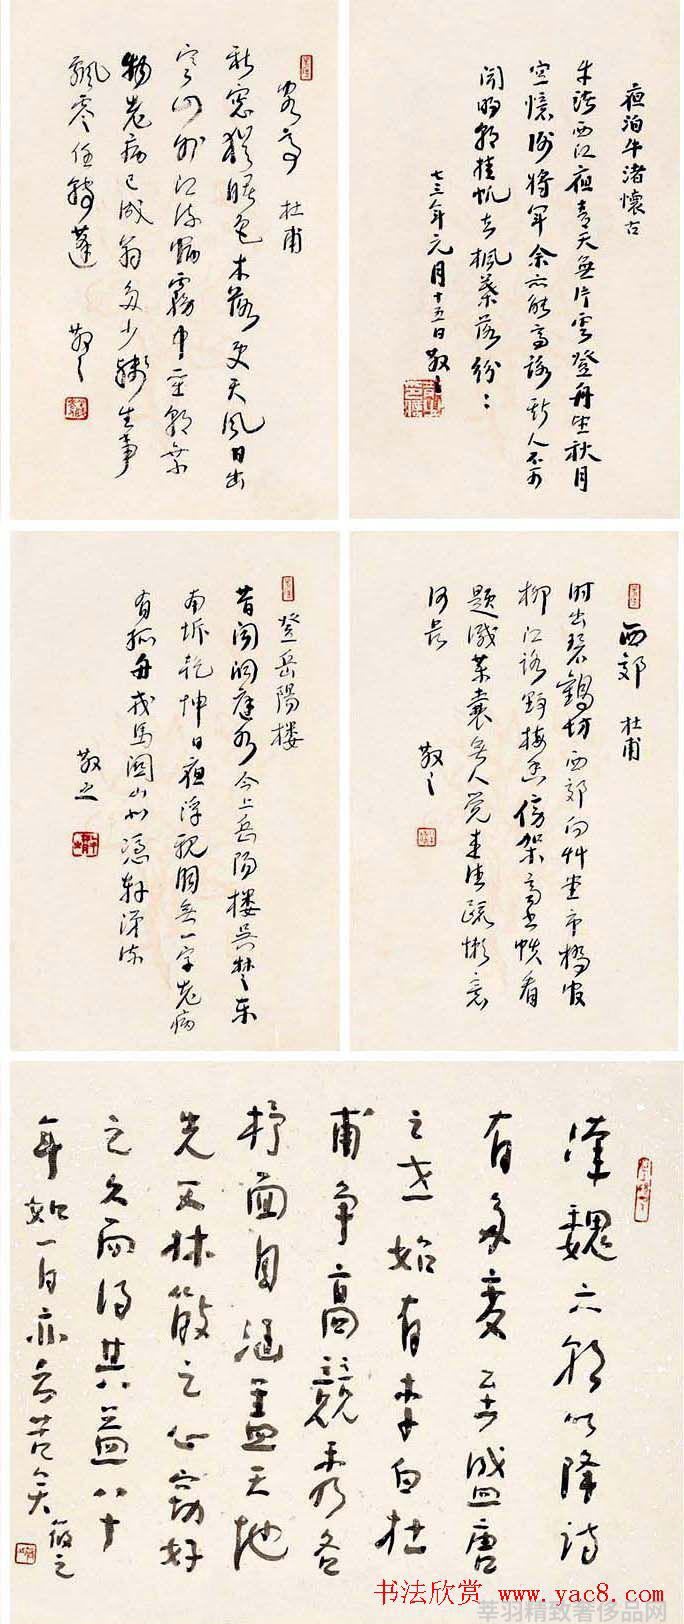 夜泊牛渚懷古
牛渚西江夜青天無片雲登舟望秋月
空憶谢將軍余亦能高詠斯人不可
闻明朝挂帆去枫葉落纷〻
七三年元月十五日敬之
客亭 杜甫
秋窓猶曙色木落更天风日出
寒山外江流宿霧中聖朝棄
物老病已成翁多少殘生事
飄零任轉蓬
敬之
西郊 杜甫
时出碧鷄坊西郊向艸堂市橋官
柳江路野梅香傍架齊書帙看
題減藥囊無人觉來往疏懒意
何长
敬之
登岳陽楼
昔闻洞庭水今上岳阳楼吴楚东
南坼乾坤日夜浮親朋無一字老病
有孤舟戎馬關山北憑轩涕流
敬之
漢魏六朝以降詩
有多变至盛唐
之世始有李白杜
甫争高競秀各
抒面目涵盖天地
先林散之心窃好
之久而得其益八十
年如一日亦云苦矣
筱之
书法欣赏 www.yac8.com
莘羽精致奢侈品网